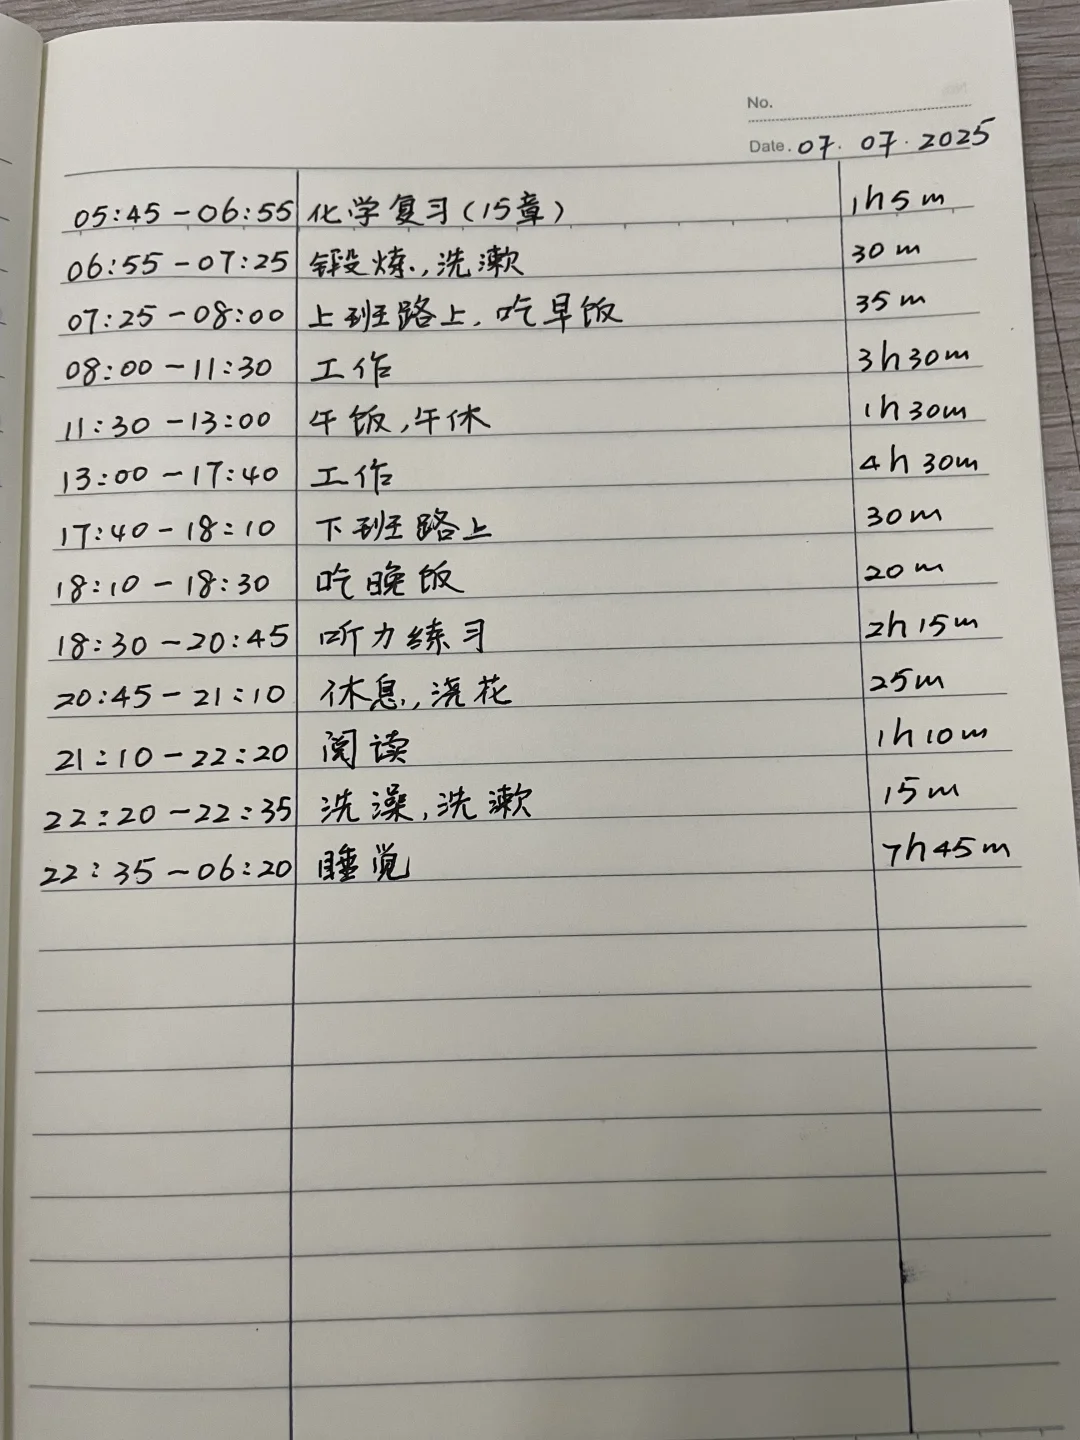 No.
Date. 07. 07. 2025
05:45-06:55 化学复习(15章) 1h5m
06:55-07:25 锻炼,洗漱 30m
07:25-08:00 上班路上,吃早饭 35m
08:00-11:30 工作 3h30m
11:30-13:00 午饭,午休 1h30m
13:00-17:40 工作 4h30m
17:40-18:10 下班路上 30m
18:10-18:30 吃晚饭 20m
18:30-20:45 听力练习 2h15m
20:45-21:10 休息,浇花 25m
21:10-22:20 阅读 1h10m
22:20-22:35 洗澡,洗漱 15m
22:35-06:20 睡觉 7h45m